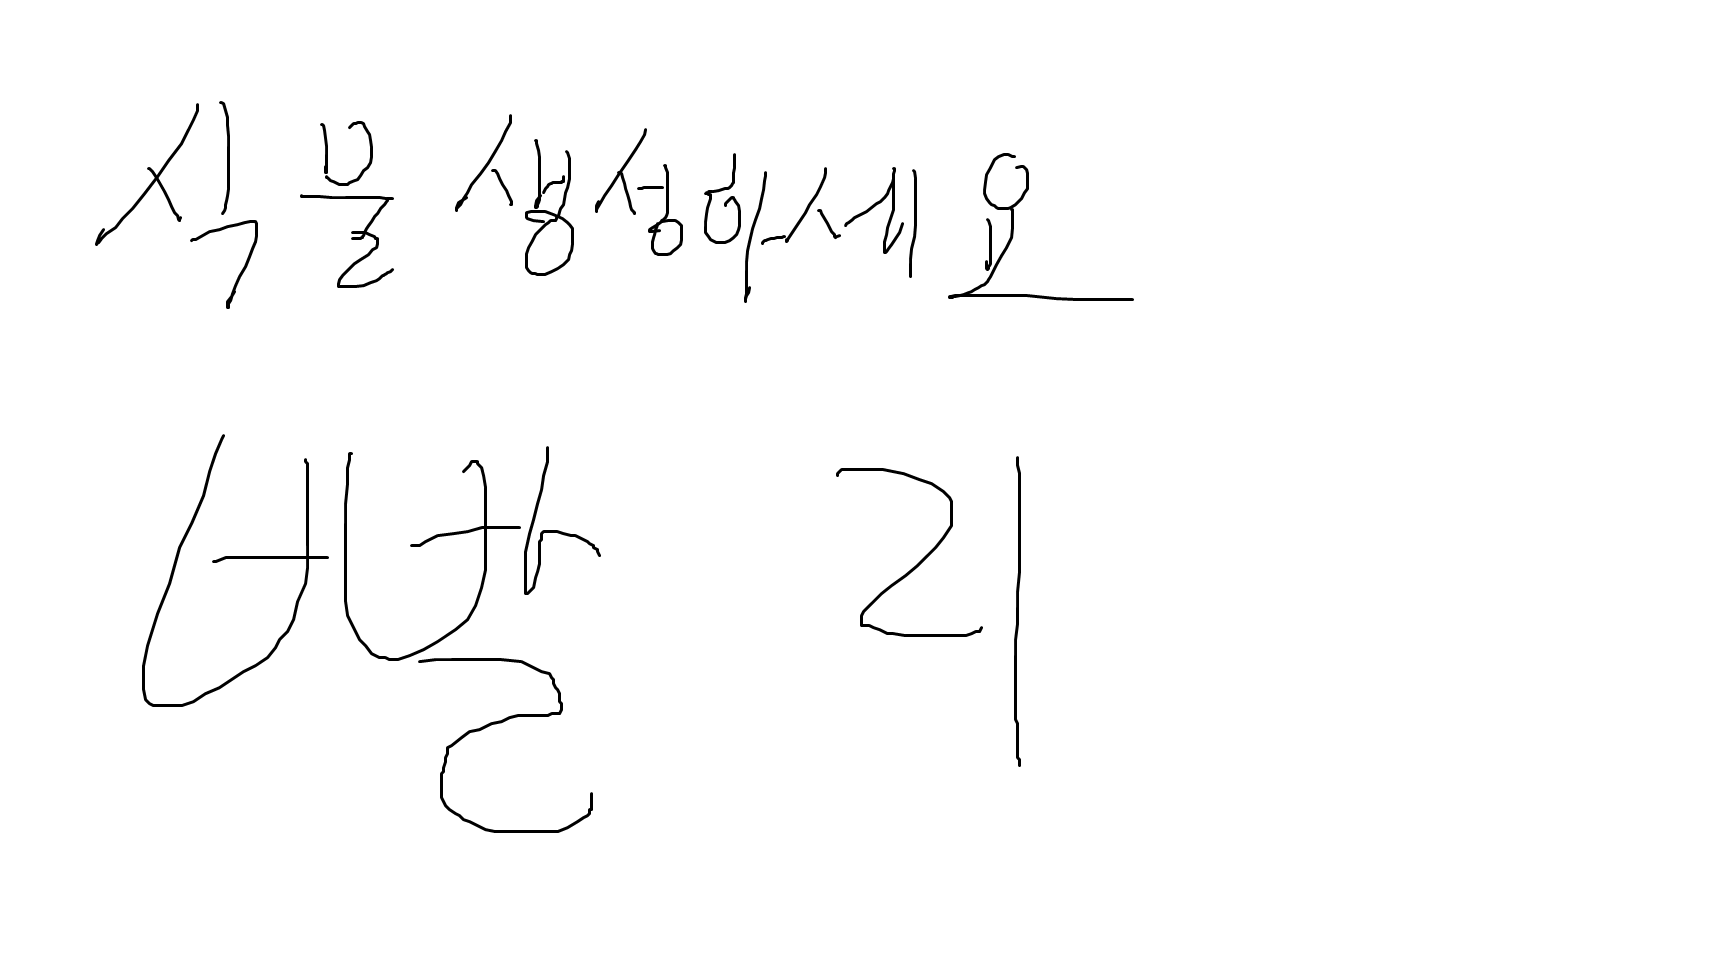 식물 생성하세요
빨 리